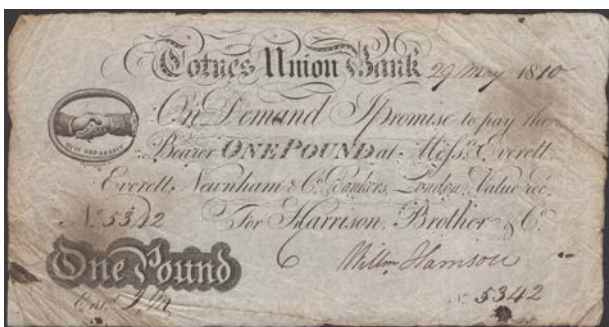 Totnes Union Bank 29 May 1810
On Demand I promise to pay the
Bearer ONE POUND at Messrs Everett
Everett, Newnham & Co. Bankers, London. Value rec.
No. 5342 For Harrison, Brother & Co.
One Pound
Willm Harrison
Entd
No. 5342